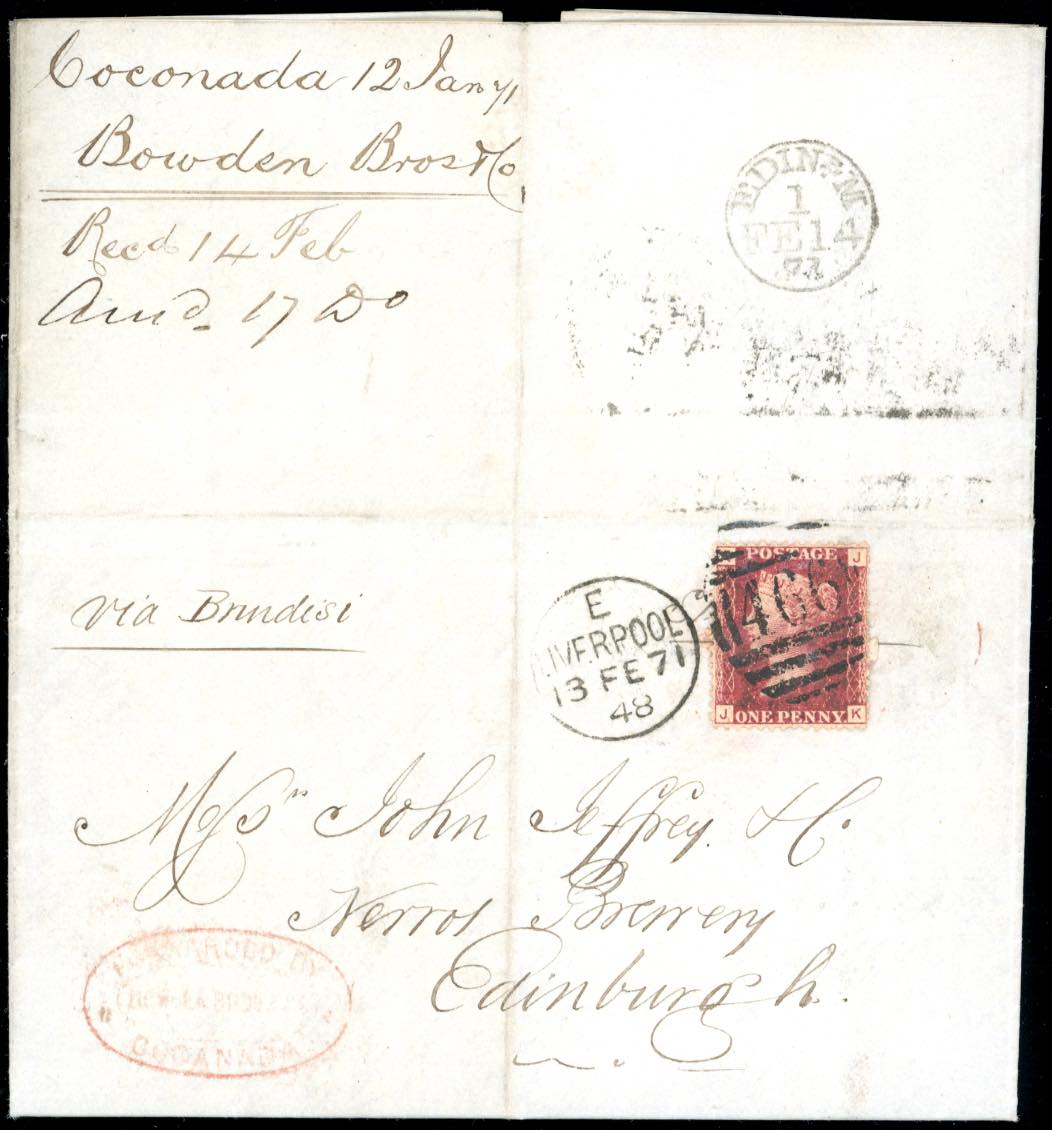 Coconada 12 Jany 71
Bowden Bros & Co
Recd 14 Feb
Ansd 17 Do
EDINR M
1
FE 14
71
via Brindisi
E
LIVERPOOL
13 FE 71
48
POSTAGE
J
466
J ONE PENNY K
Messrs John Jeffrey & Co.
Brewery
Edinburgh.
FORWARDED BY
COCANADA